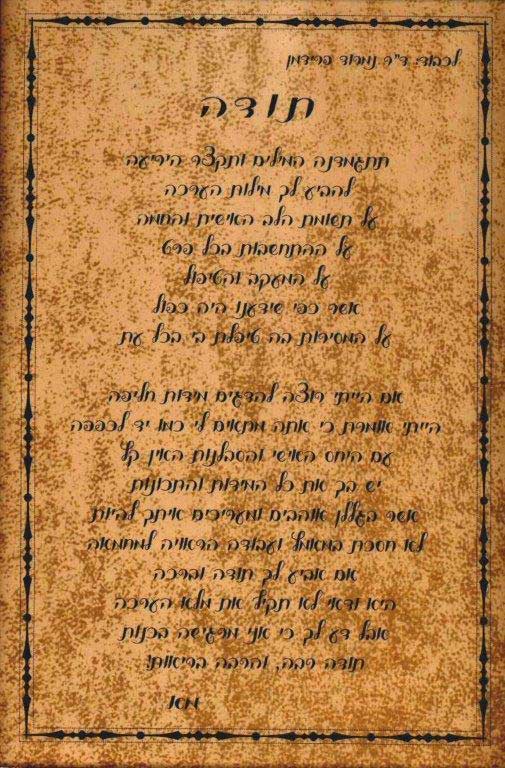 לכבוד: ד"ר נמרוד פרידמן
תודה
תתגמדנה המילים ותקצר היריעה
להביע לך מילות הערכה
על תשומת הלב האישית והחמה
על ההתחשבות בכל פרט
על המעקב והטיפול
אשר כפי שידענו היה כפול
על המסירות בה טיפלת בי בכל עת
אם הייתי רוצה להדגים מידות חליפה
הייתי אומרת כי אתה מתאים לי כמו יד לכפפה
עם היחס האישי והסבלנות האין קץ
יש בך את כל המידות והתכונות
אשר בגללן אוהבים ומעריכים איתך להיות
לא חסכת במאמץ ועבודה הראויה למחמאה
אם אביע לך תודה וברכה
היא ודאי לא תקיל את מלוא הערכה
אבל דע לך כי אני מרגישה בכנות
תודה רבה, והרבה בריאות!